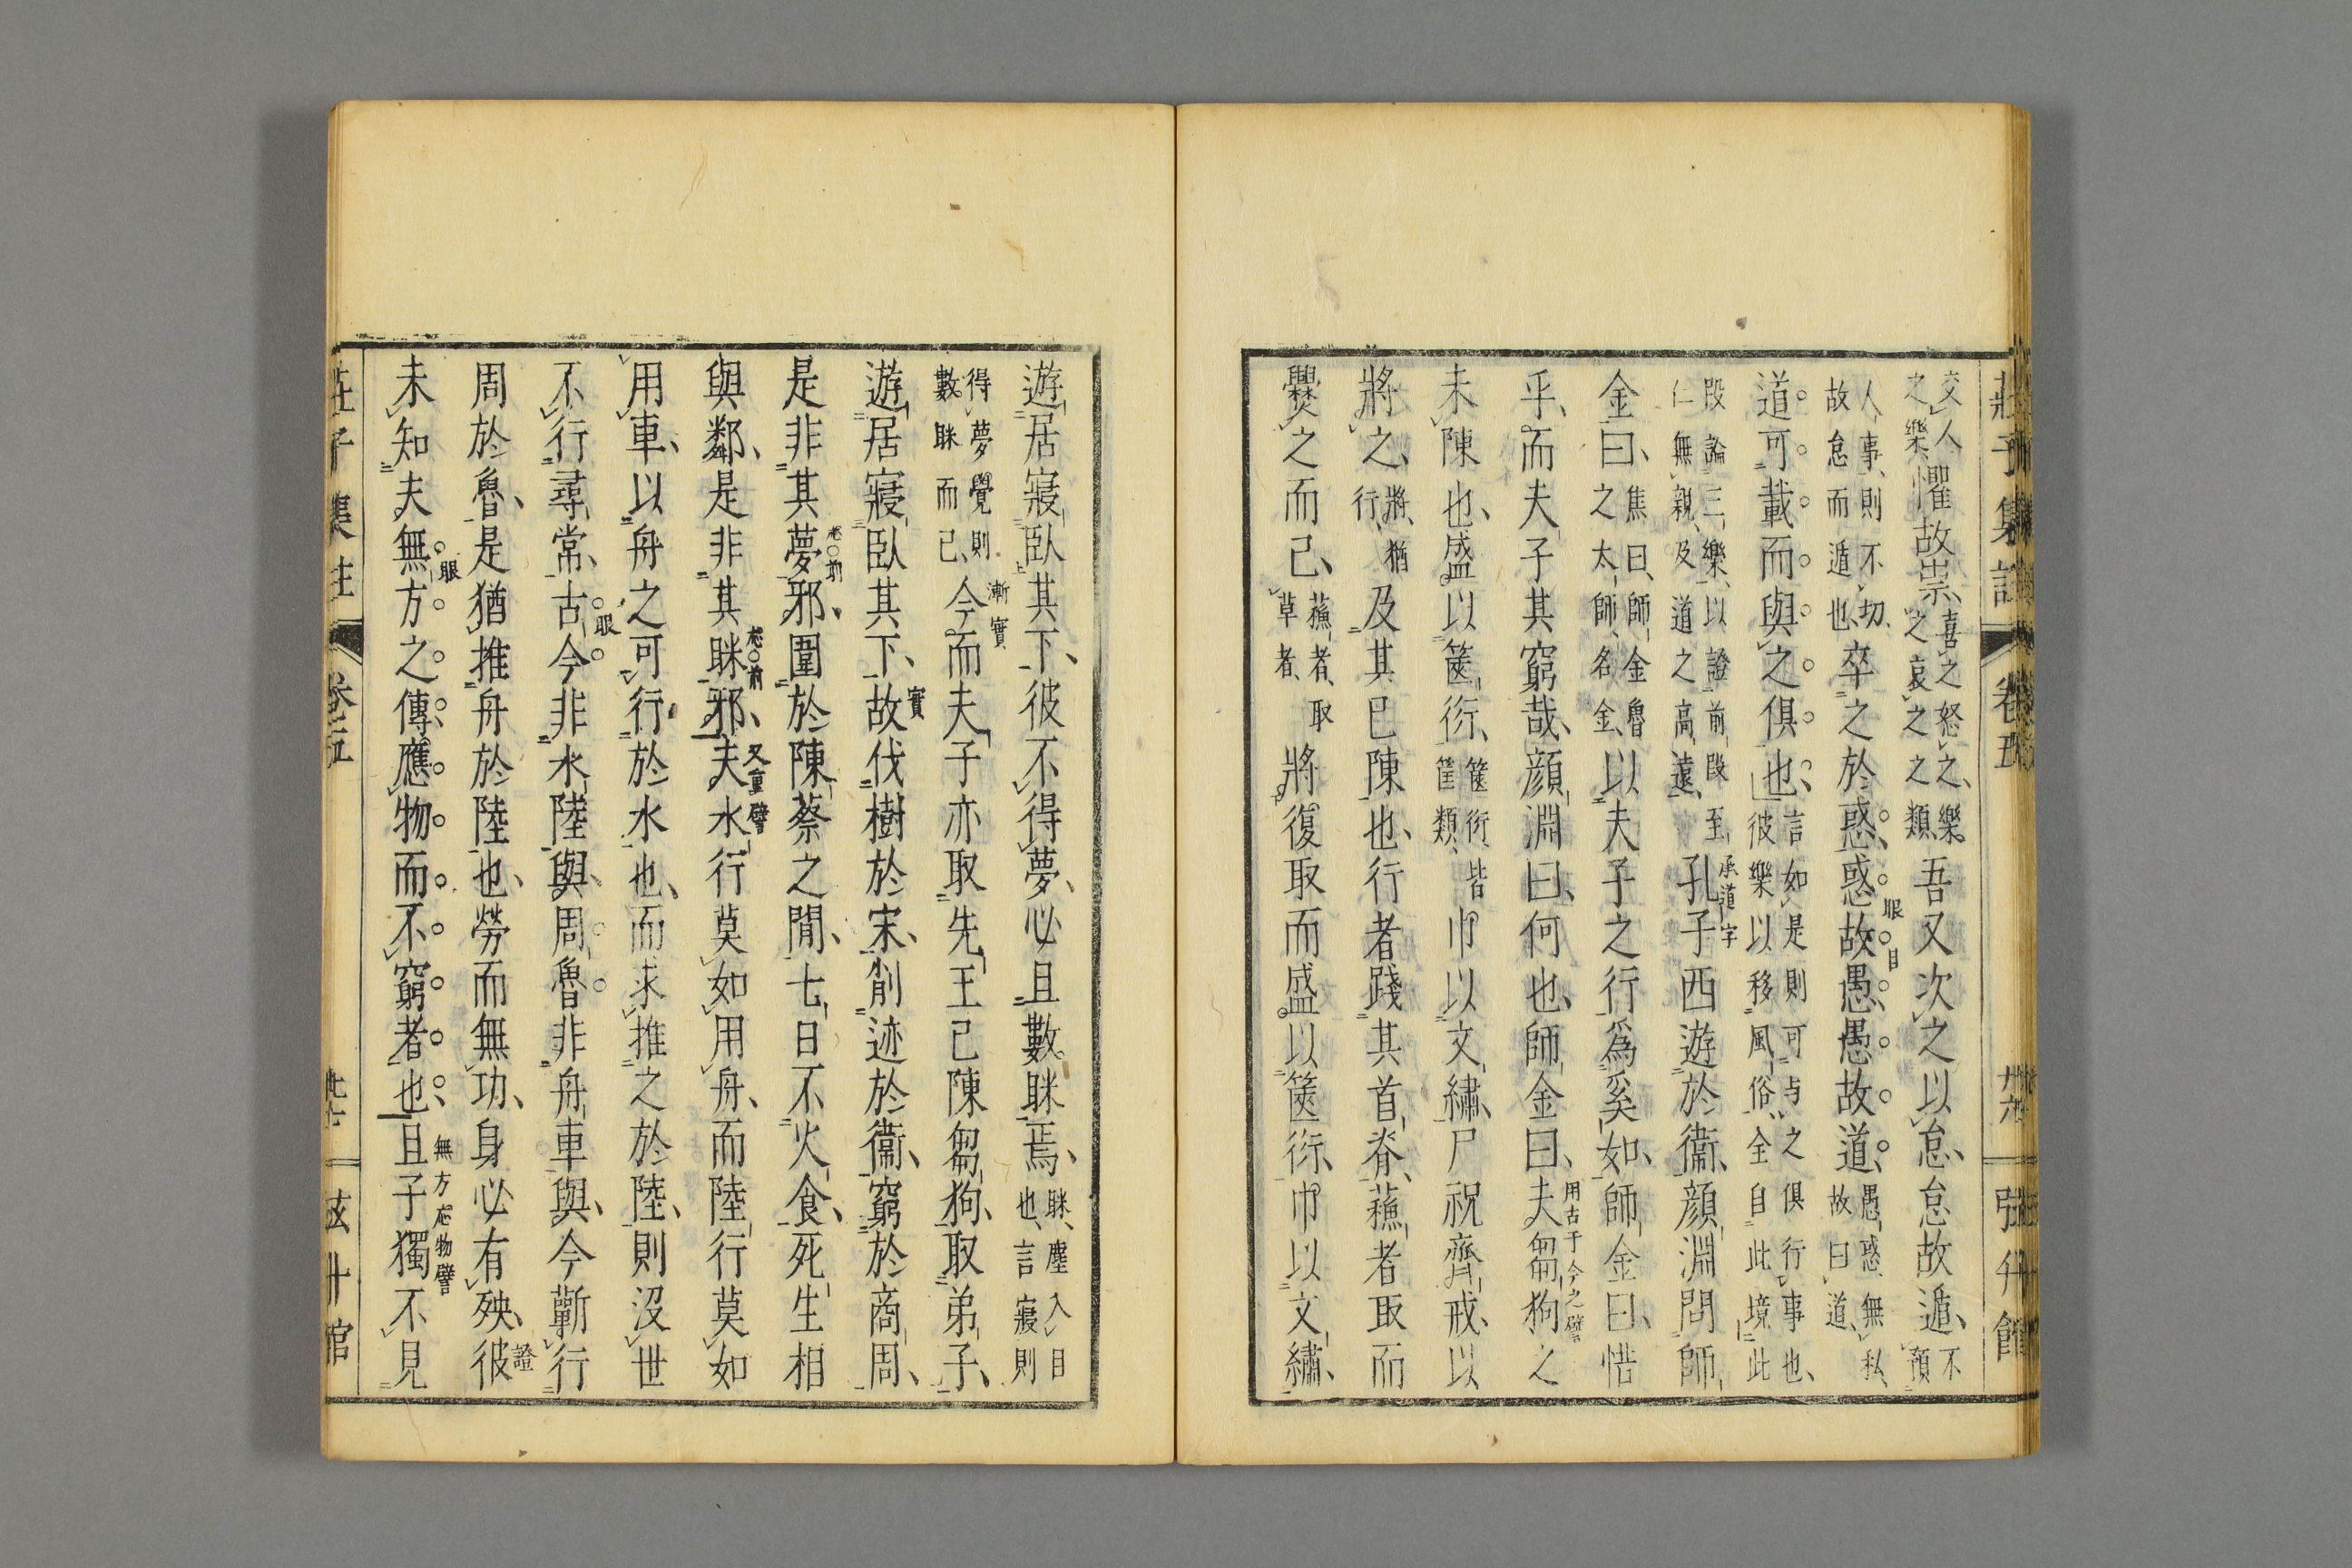 莊子集註 卷五 弦升館
交人之樂、懼故祟、喜之怒之、樂之哀之之類、吾又次之以怠、怠故遁、不預
人事、則不切、故怠而遁也、卒之於惑、惑故愚、愚故道、愚惑無私、故曰道、
道可載而與之俱也、言如是則可与之俱行事也、彼樂以移風俗、全自此境此
段論三樂、以證前段至仁無親、及道之高遠、孔子西遊於衞、顔淵問師
承道字
眼目
金曰、焦曰、師金魯之太師、名金、以夫子之行爲奚如、師金曰、惜
乎、而夫子其窮哉、顔淵曰、何也、師金曰、夫芻狗之
用古于今之譬
未陳也、盛以篋衍、篋衍、皆筐類、巾以文繡、尸祝齊戒、以
將之、將、猶行、及其已陳也、行者踐其首脊、蘓者取而
爨之而已、蘓者、取草者、將復取而盛以篋衍、巾以文繡、
遊居寢臥其下、彼不得夢、必且數眯焉、眯、塵入目也、言寢則
得夢覺則數眯而已、今而夫子亦取先王已陳芻狗、取弟子、
漸實
遊居寢臥其下、故伐樹於宋、削迹於衞、窮於商周、
實
是非其夢邪、圍於陳蔡之閒、七日不火食、死生相
與鄰、是非其眯邪、夫水行莫如用舟、而陸行莫如
又重譬
用車、以舟之可行於水也、而求推之於陸、則沒世
不行尋常、古今非水陸與、周魯非舟車與、今蘄行
眼
周於魯、是猶推舟於陸也、勞而無功、身必有殃、彼
證
未知夫無方之傳、應物而不窮者也、且子獨不見
眼
無方応物譬
莊子集註 卷五 弦升館